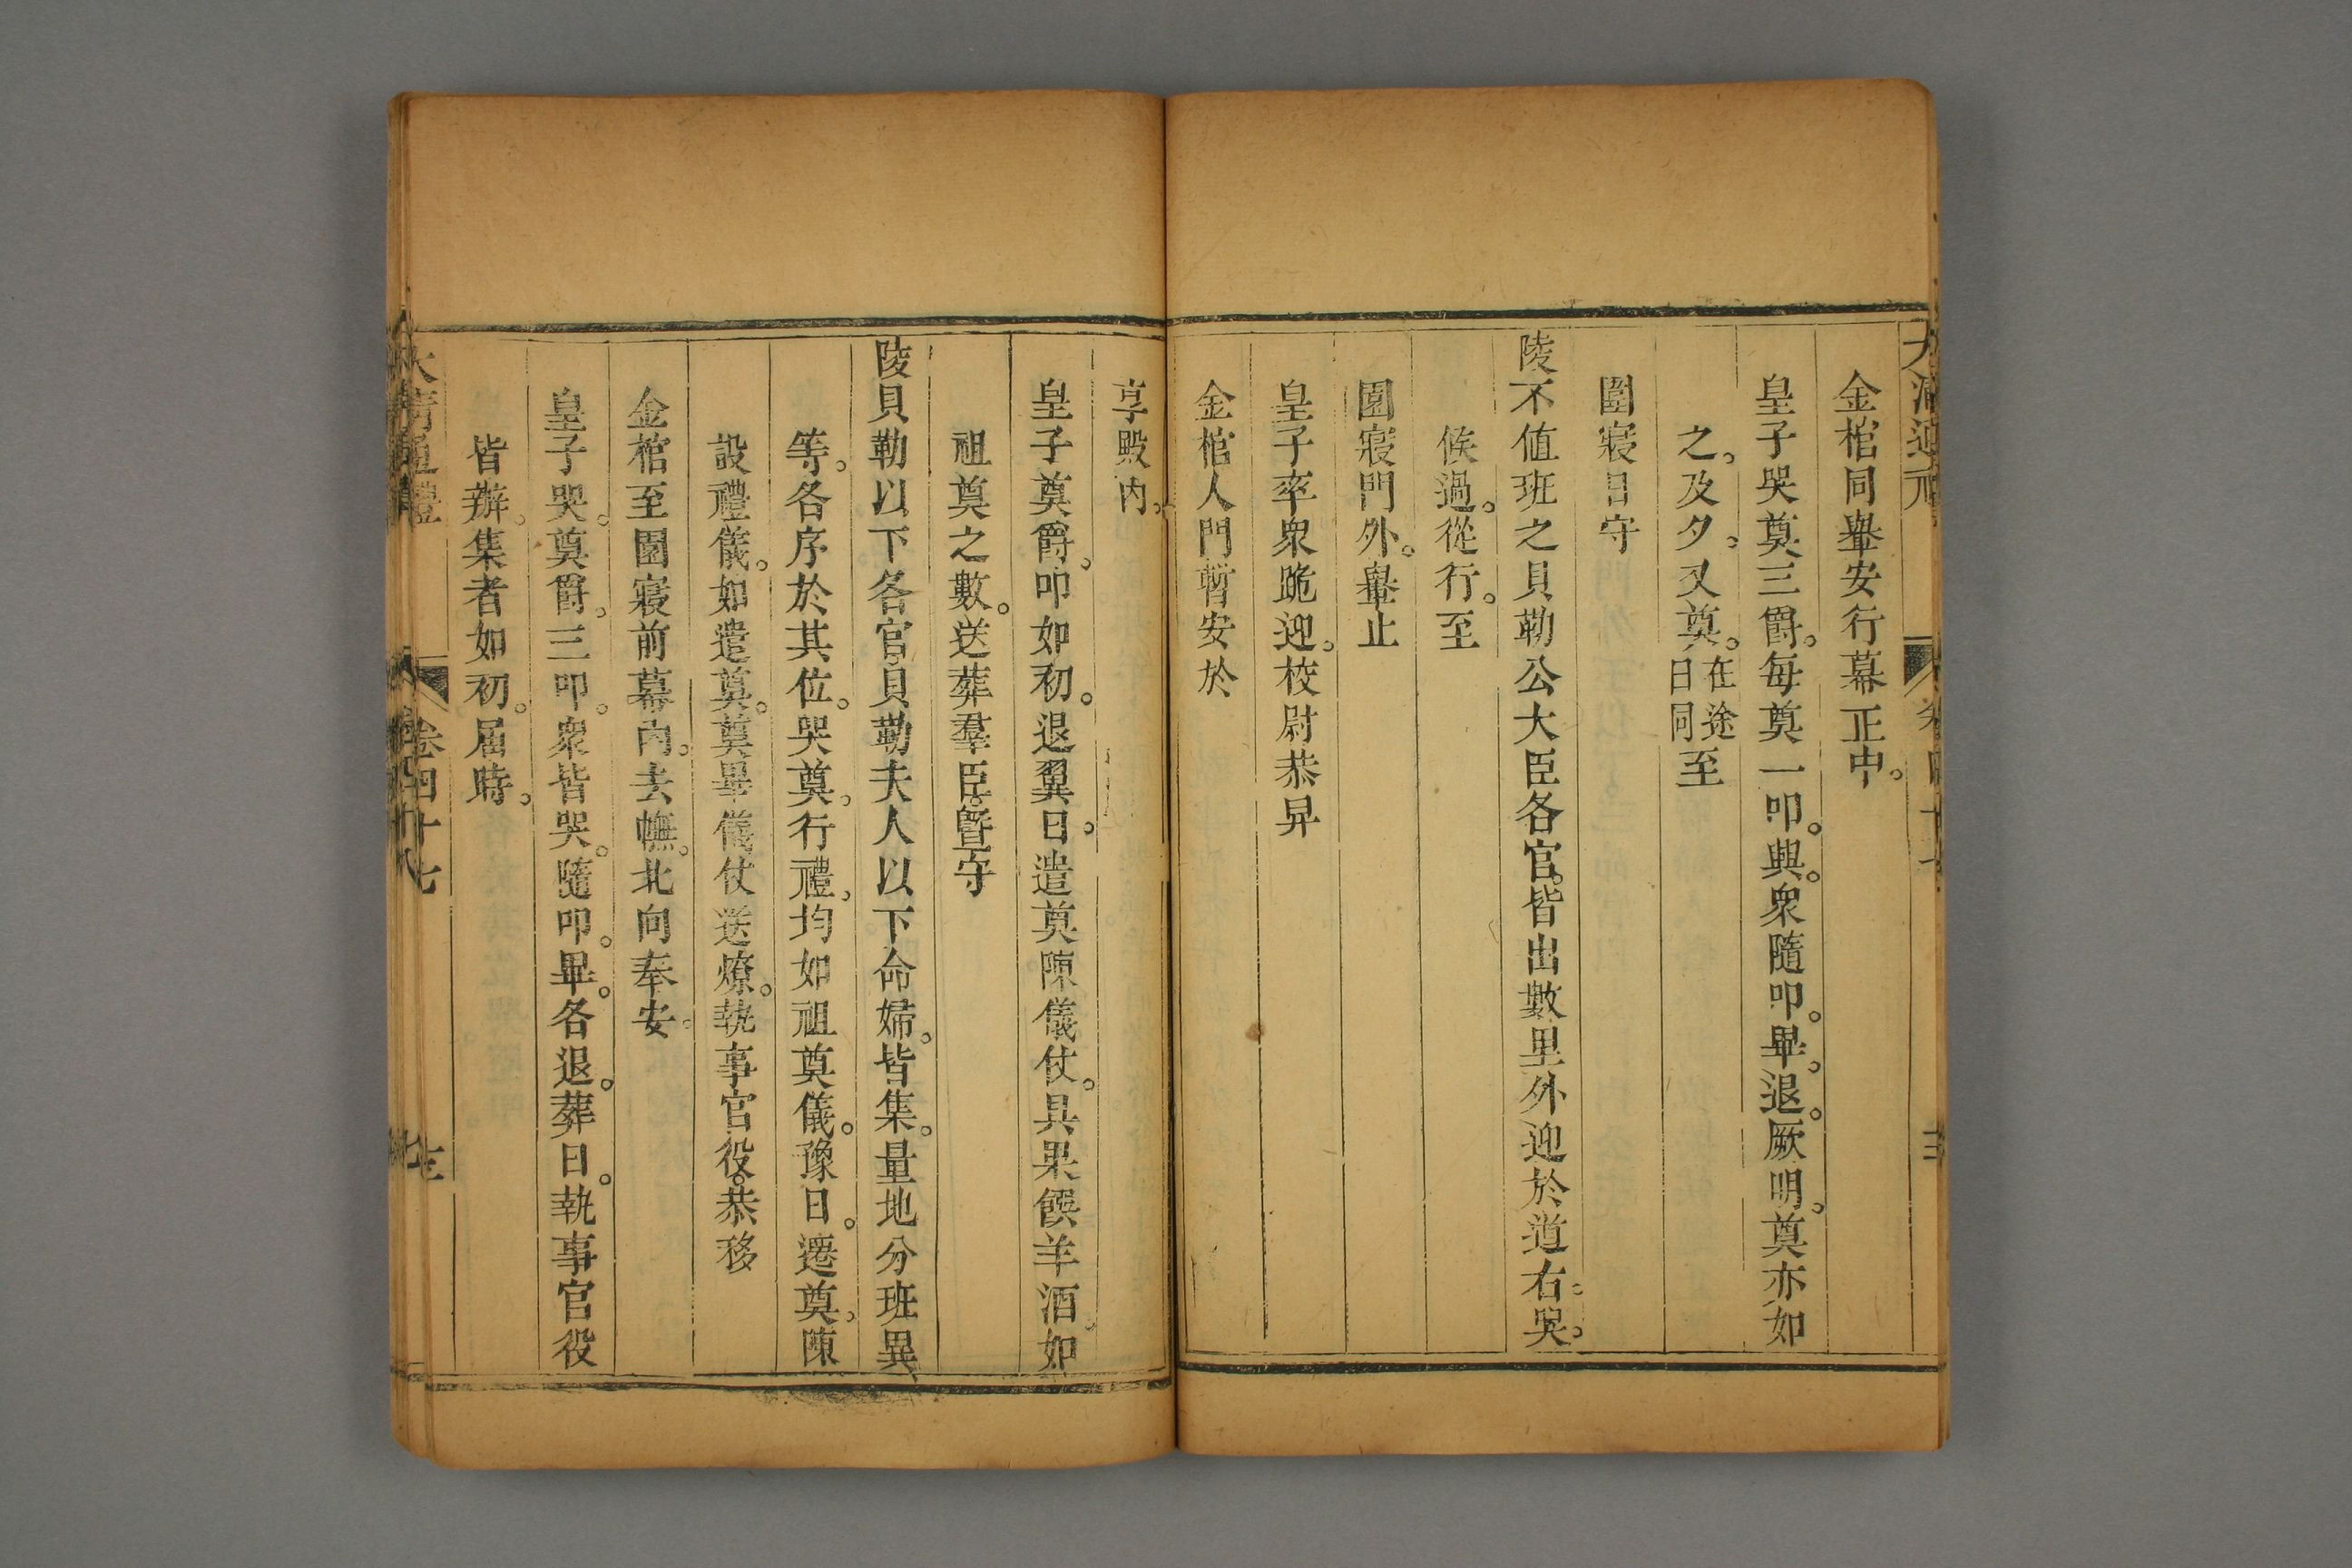 金棺同轝安行幕正中。
皇子哭奠三爵。每奠一叩。興。衆隨叩。畢。退。厥明。奠亦如
之。及夕。又奠。在途日同至
園寢日守
陵不値班之貝勒公大臣各官。皆出數里外迎於道右。哭。
候過。從行。至
園寢門外。轝止
皇子率衆跪迎。校尉恭舁
金棺入門暫安於
享殿內。
皇子奠爵。叩如初。退翼日。遣奠陳儀仗。具果饌羊酒。如
祖奠之數。送葬羣臣。曁守
陵貝勒以下各官貝勒夫人以下命婦。皆集。量地分班異
等。各序於其位。哭奠。行禮。均如祖奠儀。豫日。遷奠。陳
設禮儀。如遣奠。奠畢儀仗送燎。執事官役。恭移
金棺至園寢前幕內。去幠。北向奉安。
皇子哭。奠爵。三叩。衆皆哭。隨叩。畢。各退。葬日。執事官役
皆辦。集者如初。屆時。
大清通禮
卷四十七